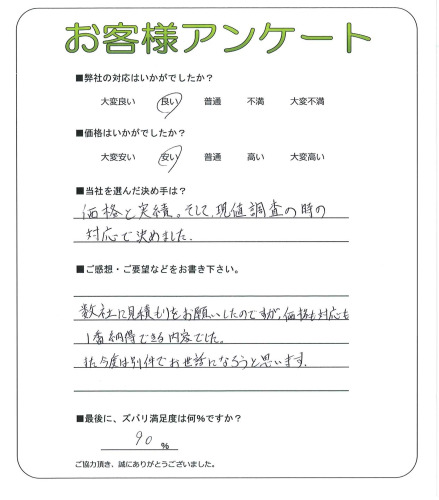 お客様アンケート
■弊社の対応はいかがでしたか？
大変良い 良い 普通 不満 大変不満
■価格はいかがでしたか？
大変安い 安い 普通 高い 大変高い
■当社を選んだ決め手は？
価格と実績。そして、現値調査の時の
対応で決めました。
■ご感想・ご要望などをお書き下さい。
数社に見積もりをお願いしたのですが、価格も対応も
1番納得できる内容でした。
また今度は別件でお世話になろうと思います。
■最後に、ズバリ満足度は何%ですか？
90 %
ご協力頂き、誠にありがとうございました。